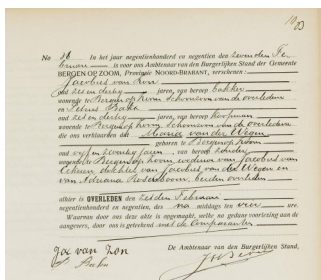 No 28 In het jaar negentienhonderd en negentien den zevenden Fe-
bruari is voor ons Ambtenaar van den Burgerlijken Stand der Gemeente
BERGEN OP ZOOM, Provincie NOORD-BRABANT, verschenen:
Jacobus van Zon
oud zes en dertig jaren, van beroep bakker
wonende te Bergen op Zoom schoonzoon van de overledene
en Petrus
oud zes en dertig jaren, van beroep koopman
wonende te Bergen op Zoom schoonzoon van de overledene
die ons verklaarden dat Maria van der Wegen
geboren te Bergen op Zoom
oud vijf en zeventig jaren, van beroep zonder
wonende te Bergen op Zoom, weduwe van Jacobus van
dochter van Jacobus van der Wegen en
van Adriana beiden overleden
alhier is OVERLEDEN den zesden Februari
negentienhonderd en negentien, des na middags ten vier ure.
Waarvan door ons deze akte is opgemaakt, welke na gedane voorlezing aan de
aangevers, door ons is geteekend met de Comparanten
De Ambtenaar van den Burgerlijken Stand,
Jac van Zon